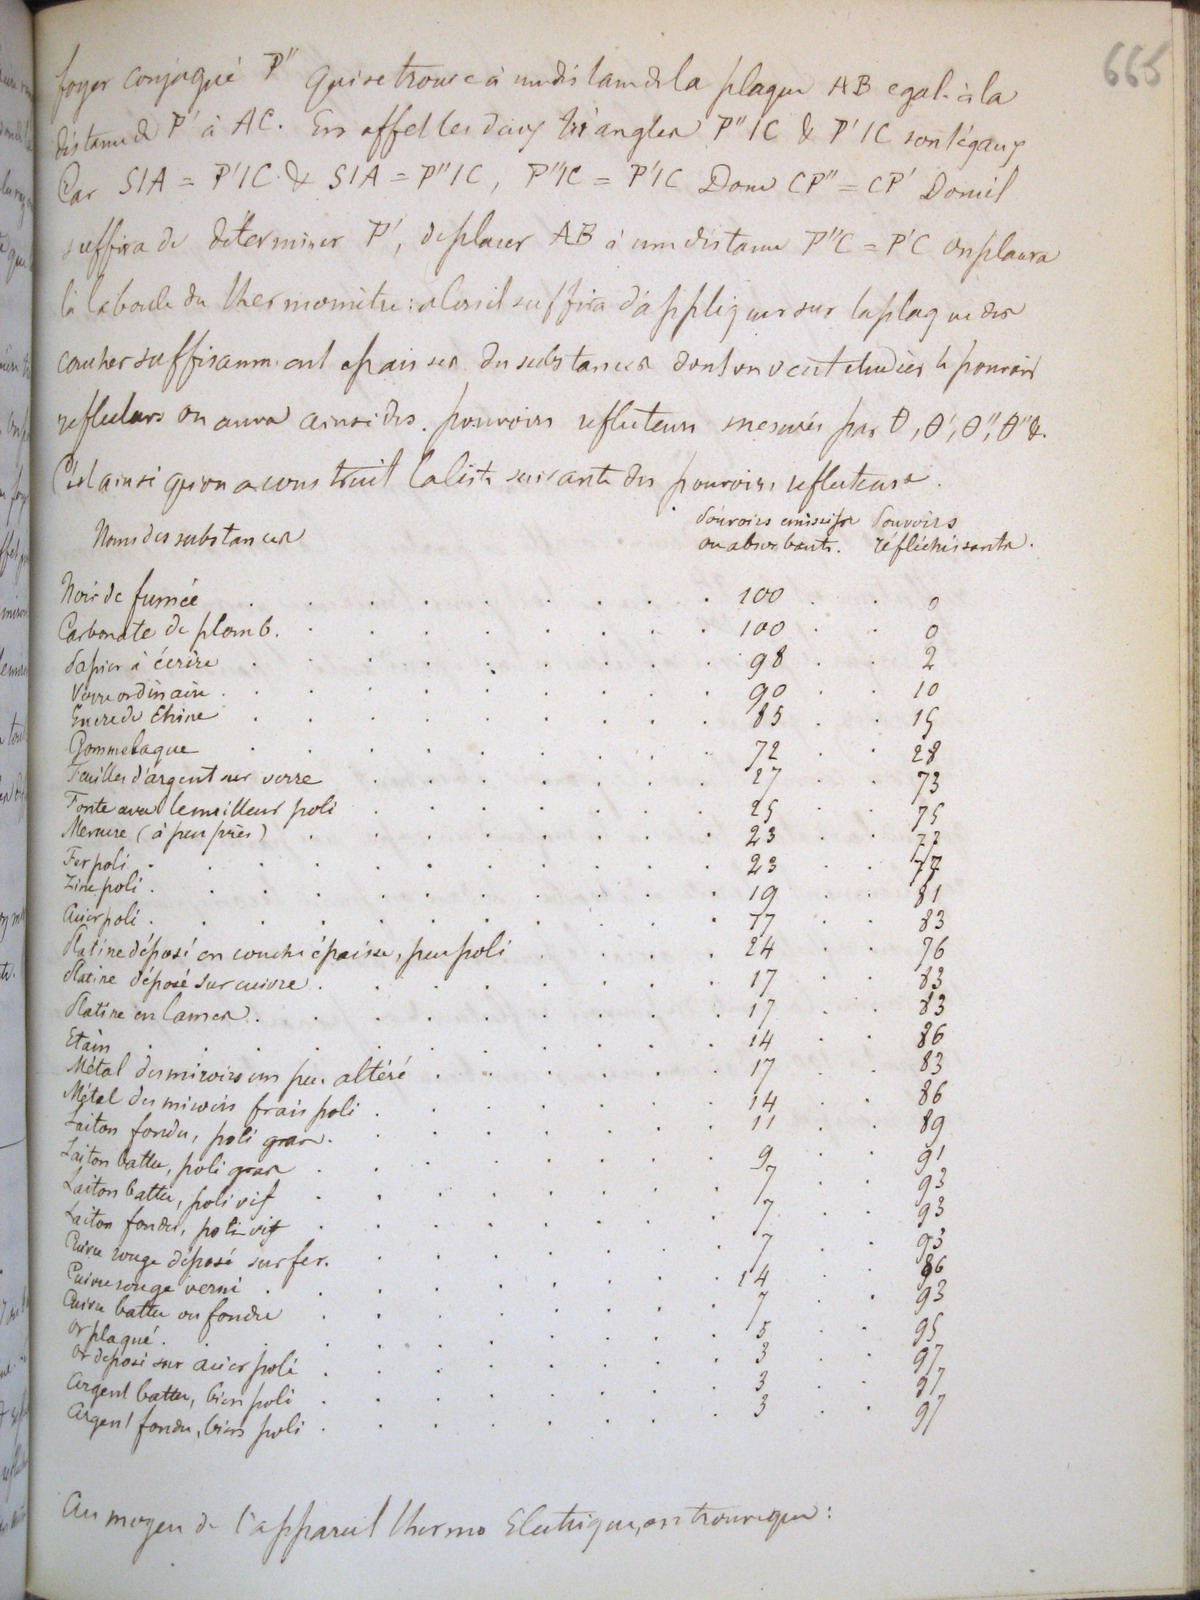 665
foyer conjugué P'' qui se trouve à une distance de la plaque AB egale à la
distance de P' à AC. En effet les deux triangles P''IC & P'IC sont égaux
Car SIA = P'IC & SIA = P''IC, P''IC = P'IC Donc CP'' = CP' Donc il
suffira de déterminer P', de placer AB à une distance P''C = P'C on placera
là la boule du thermomètre: alors il suffira d'appliquer sur la plaque des
couches suffisamment épaisses des substances dont on veut étudier le pouvoir
reflecteurs on aura ainsi des pouvoirs reflecteurs mesurés par θ, θ', θ'', θ''' &.
C'est ainsi qu'on a construit la liste suivante des pouvoirs reflecteurs.
Noms des substances Pouvoirs émissifs Pouvoirs
ou absorbants. réfléchissants.
Noir de fumée . . . . . . . . . 100 . . 0
Carbonate de plomb. . . . . . . . . 100 . . 0
Papier à écrire . . . . . . . . . 98 . . 2
Verre ordinaire . . . . . . . . . 90 . . 10
Encre de Chine . . . . . . . . . 85 . . 15
Gomme laque . . . . . . . . . 72 . . 28
Feuilles d'argent sur verre . . . . . . . 27 . . 73
Fonte avec le meilleur poli . . . . . . . 25 . . 75
Mercure (à peu près) . . . . . . . . 23 . . 77
Fer poli . . . . . . . . . . . 23 . . 77
Zinc poli . . . . . . . . . . . 19 . . 81
Acier poli . . . . . . . . . . . 17 . . 83
Platine déposé en couche épaisse, peu poli . . . . 24 . . 76
Platine déposé sur cuivre . . . . . . . . 17 . . 83
Platine en lames . . . . . . . . . 17 . . 83
Etain . . . . . . . . . . . 14 . . 86
Métal des miroirs un peu altéré . . . . . . 17 . . 83
Métal des miroirs frais poli . . . . . . . 14 . . 86
Laiton fondu, poli gras. . . . . . . . 11 . . 89
Laiton battu, poli gras . . . . . . . . 9 . . 91
Laiton battu, poli vif . . . . . . . . 7 . . 93
Laiton fondu, poli vif . . . . . . . . 7 . . 93
Cuivre rouge déposé sur fer. . . . . . . . 7 . . 93
Cuivre rouge verni . . . . . . . . . 14 . . 86
Cuivre battu ou fondu . . . . . . . . 7 . . 93
Or plaqué . . . . . . . . . . . 5 . . 95
Or déposé sur acier poli . . . . . . . . 3 . . 97
Argent battu, bien poli . . . . . . . . 3 . . 97
Argent fondu, bien poli . . . . . . . . 3 . . 97
Au moyen de l'appareil thermo Electrique, on trouve que: